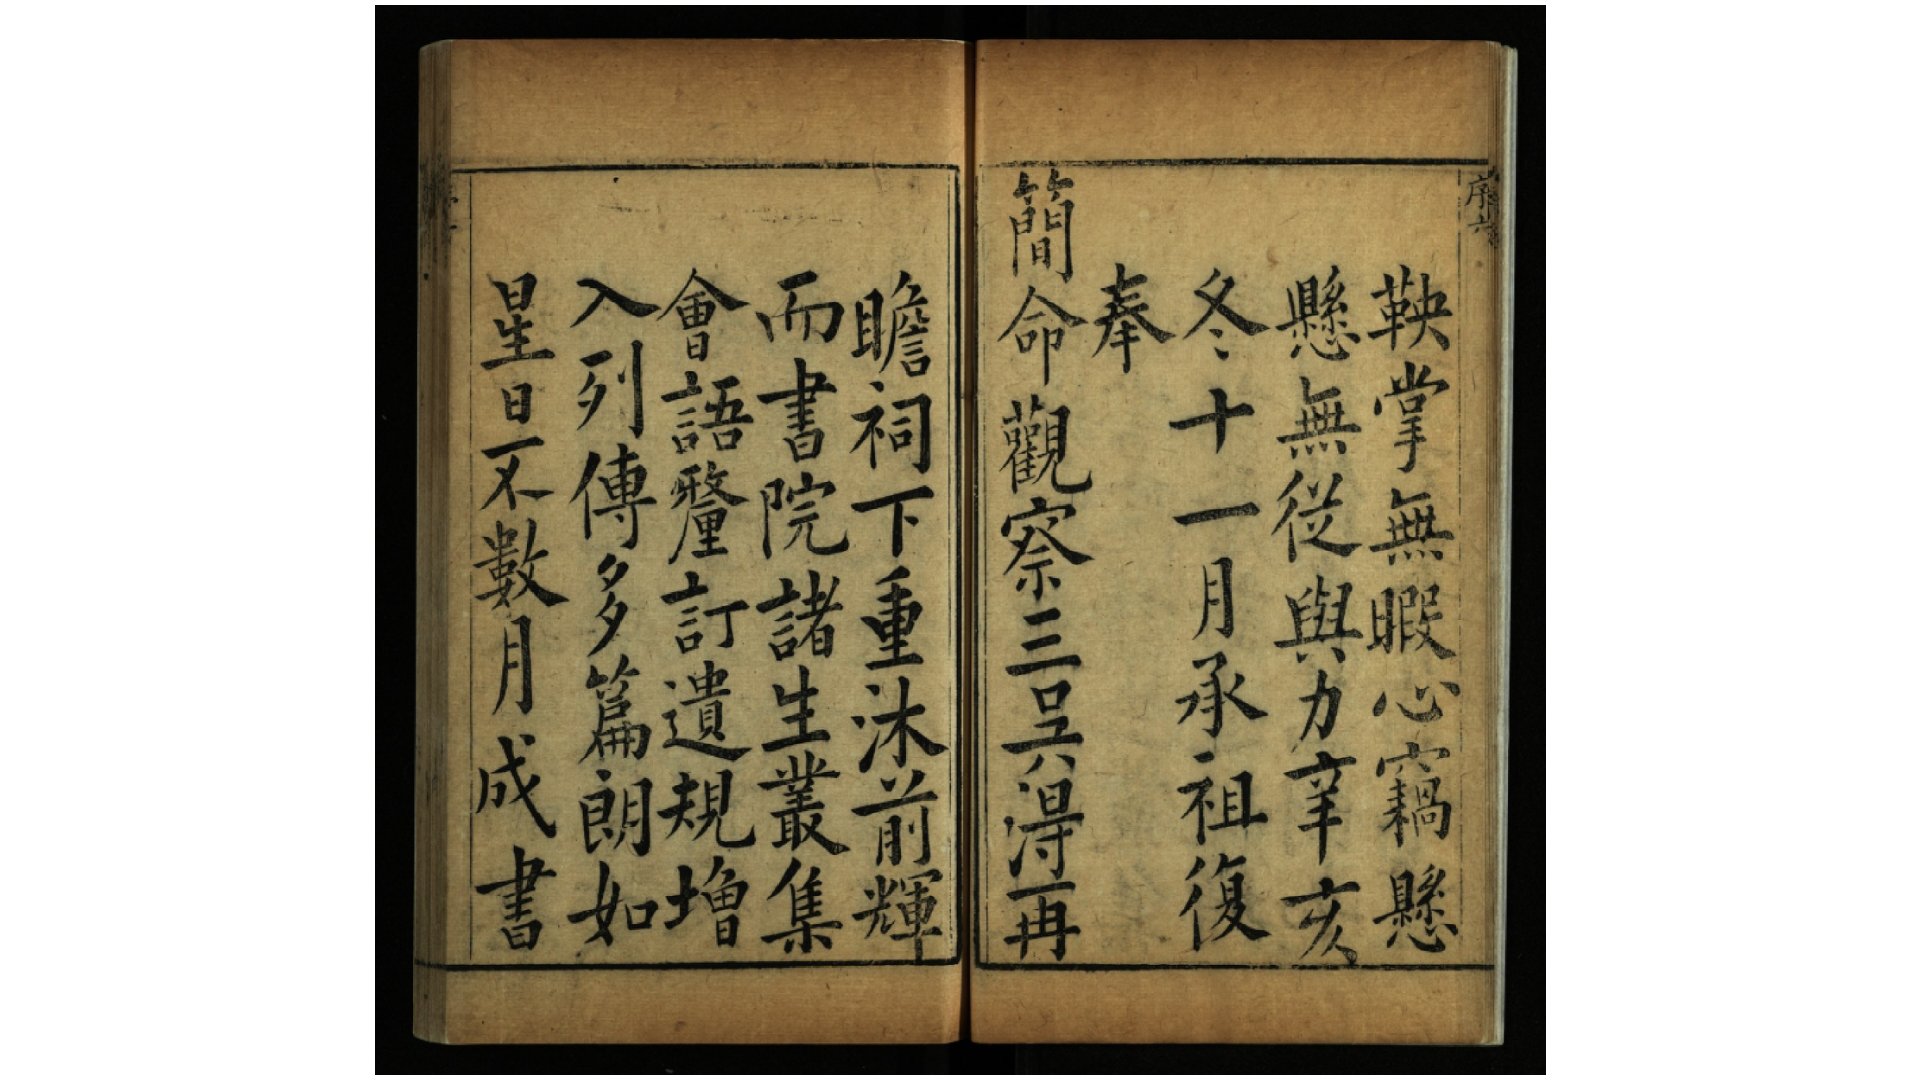 序六
鞅掌無暇心竊懸
懸無從與力辛亥
冬十一月承祖復
奉
簡命觀察三吳淂再
瞻祠下重沐前輝
而書院諸生叢集
會語釐訂遺規增
入列傳多篇朗如
星日不數月成書